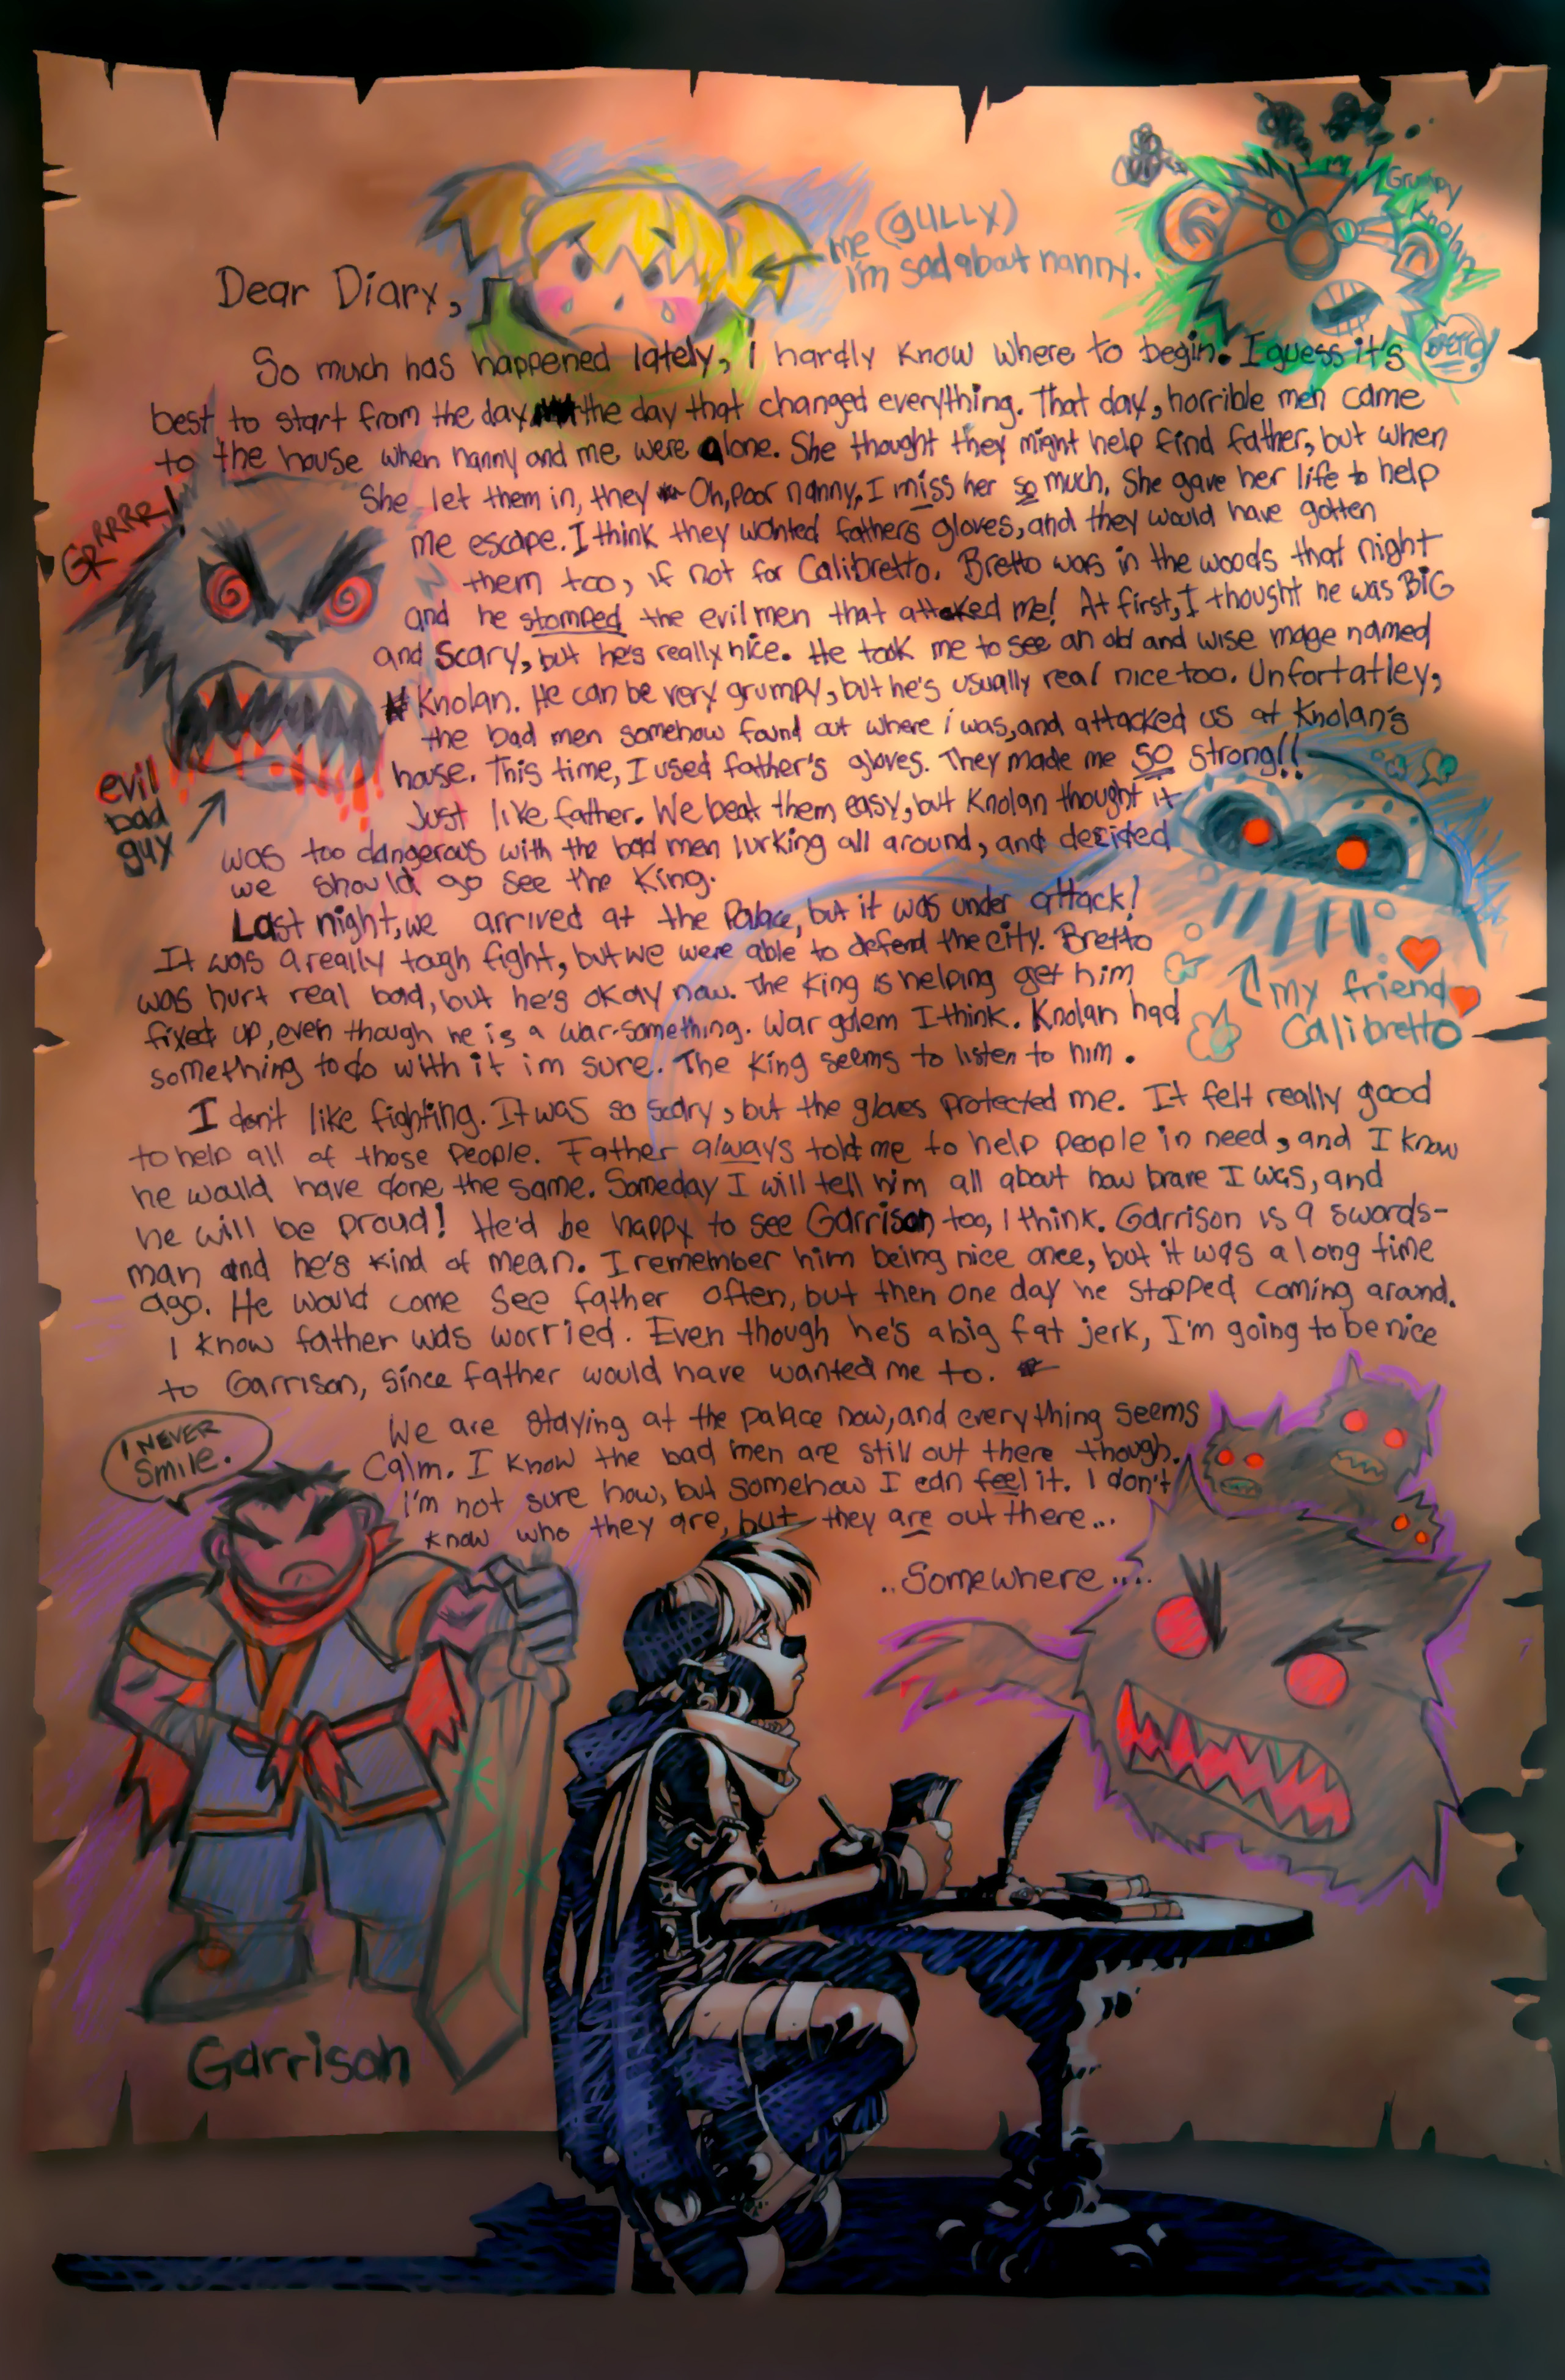 me (GULLY)
I'm sad about nanny.
Grumpy
Knolan
Dear Diary,
So much has happened lately, i hardly know where to begin. I guess it's
best to start from the day the day that changed everything. That day, horrible men came
to the house when nanny and me were alone. She thought they might help find father, but when
She let them in, they Oh, poor nanny, I miss her so much. She gave her life to help
me escape. I think they wanted fathers gloves, and they would have gotten
them too, if not for Calibretto. Bretto was in the woods that night
and he stomped the evil men that attacked me! At first, I thought he was BIG
and Scary, but he's really nice. He took me to see an old and wise mage named
Knolan. He can be very grumpy, but he's usually real nice too. Unfortatley,
the bad men somehow found out where i was, and attacked us at Knolan's
house. This time, I used father's gloves. They made me SO strong!!
Just like father. We beat them easy, but Knolan thought it
was too dangerous with the bad men lurking all around, and decided
we should go see the King.
GRRRRR!
evil
bad
guy
Last night, we arrived at the Palace, but it was under attack!
It was a really tough fight, but we were able to defend the city. Bretto
was hurt real bad, but he's okay now. The King is helping get him
fixed up, even though he is a war-something. War golem I think. Knolan had
something to do with it im sure. The King seems to listen to him.
my friend
Calibretto
I don't like fighting. It was so scary, but the gloves protected me. It felt really good
to help all of those people. Father always told me to help people in need, and I know
he would have done the same. Someday I will tell him all about how brave I was, and
he will be proud! He'd be happy to see Garrison too, I think. Garrison is a swords-
man and he's kind of mean. I remember him being nice once, but it was a long time
ago. He would come see father often, but then one day he stopped coming around.
I know father was worried. Even though he's a big fat jerk, I'm going to be nice
to Garrison, since father would have wanted me to.
We are staying at the palace now, and everything seems
Calm. I know the bad men are still out there though.
I'm not sure how, but somehow I can feel it. I don't
know who they are, but they are out there...
..Somewhere....
I NEVER
Smile.
Garrison